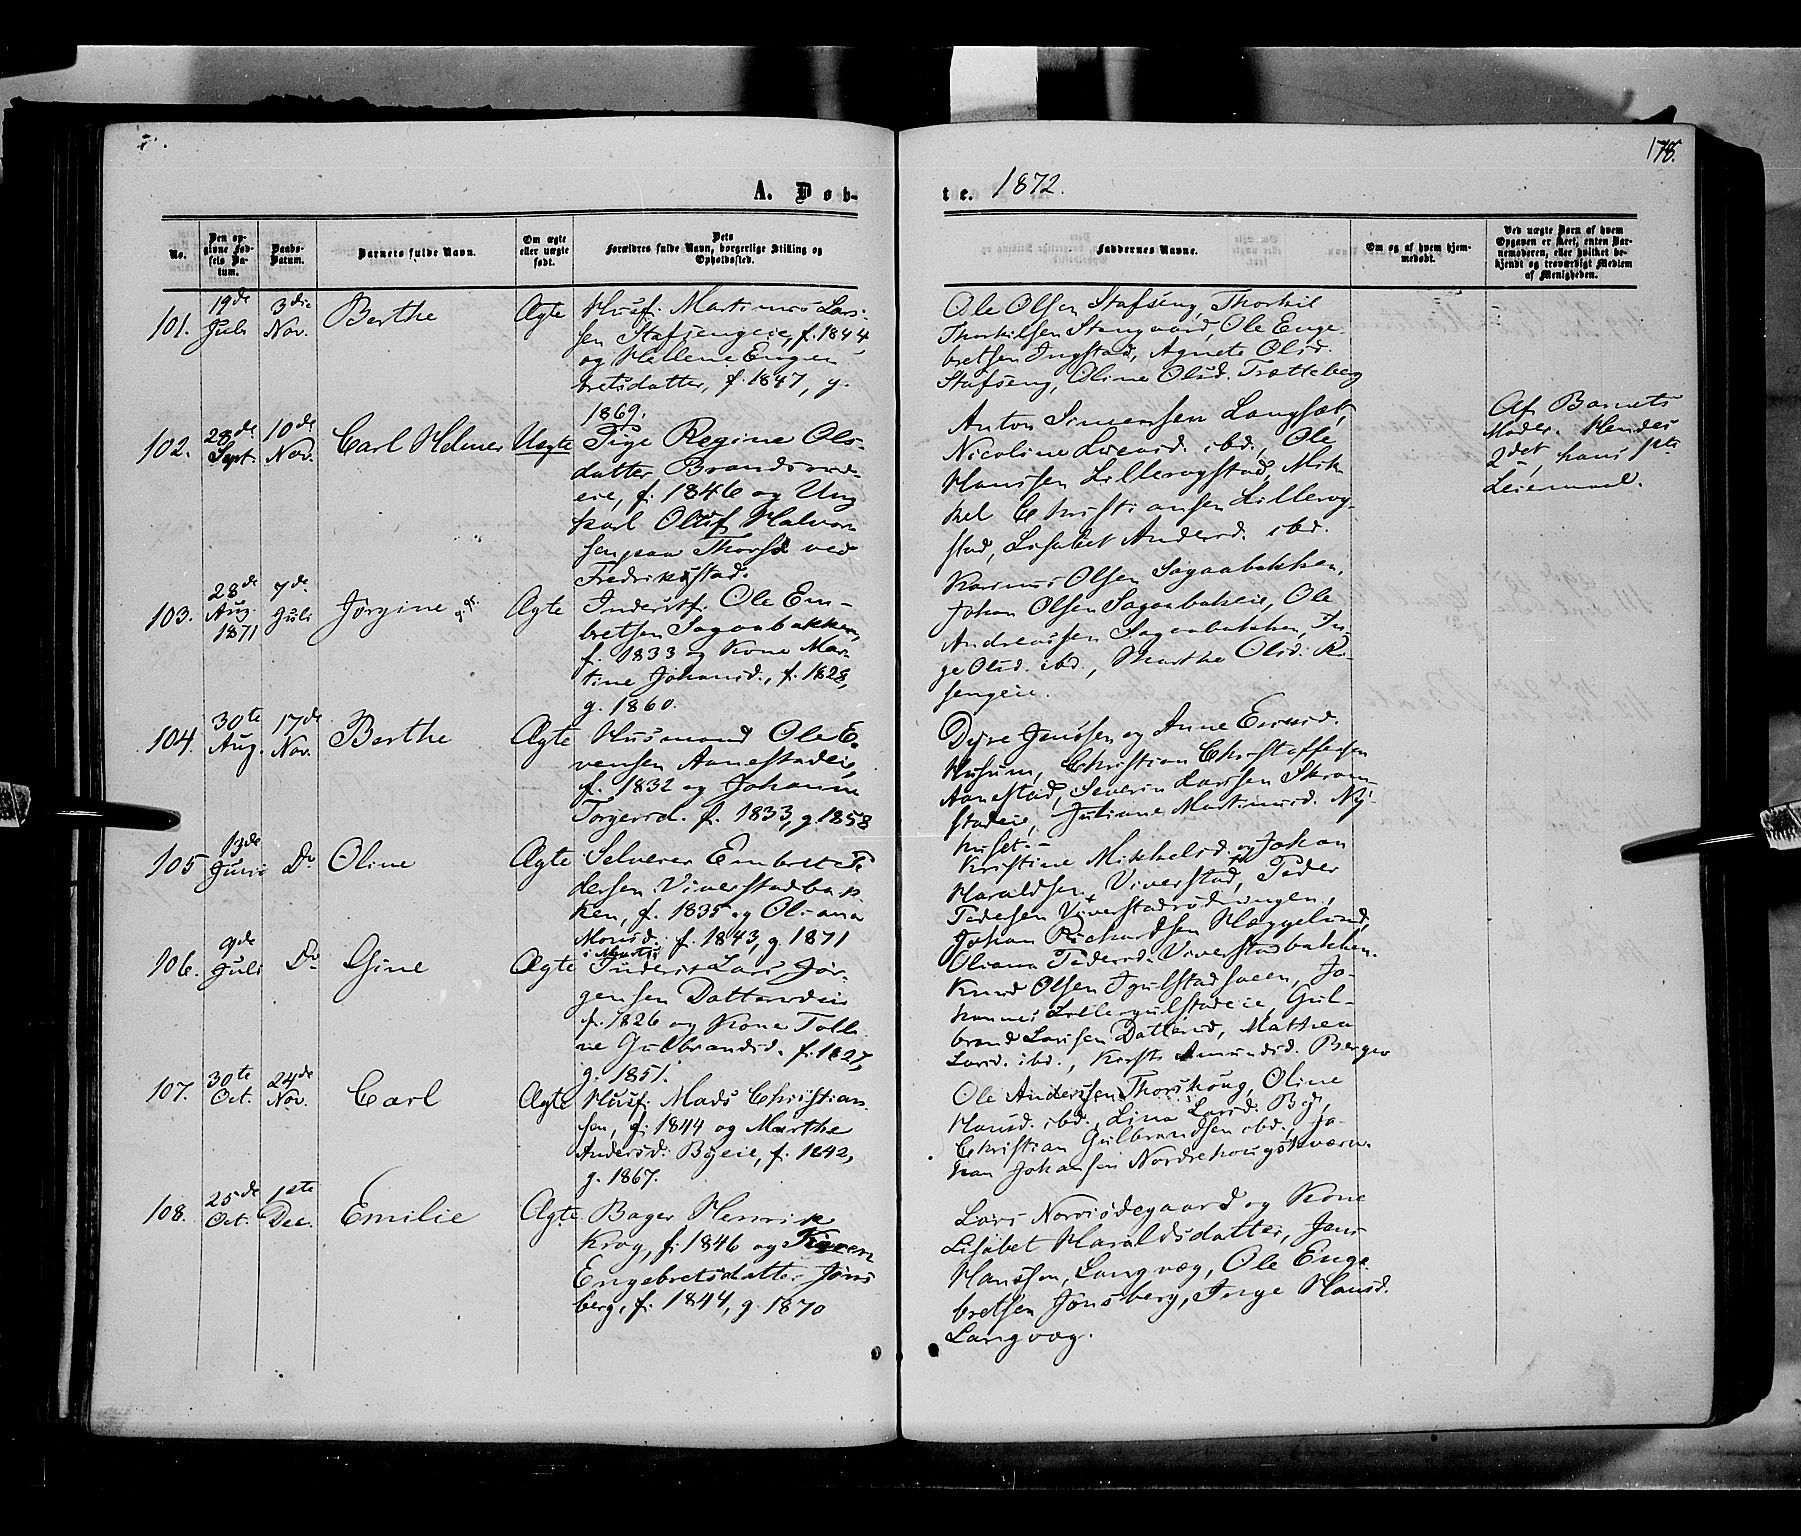 178.
A. Døb-
te. 1872.
No.
Den op-
givne Fød-
sels Da-
tum.
Daabs-
Datum.
Barnets fulde Navn.
Om ægte
eller uægte
født.
Dets
Forældres fulde Navn, borgerlige Stilling og
Opholdssted.
Faddernes Navne.
Om og af hvem hjem-
medøbt.
Ved uægte Barn af hvem
Opgaven er skeet, enten Bar-
nemoderen, eller hvilket be-
kjendt og troværdigt Medlem
af Menigheden.
101.
19de
Juli
3die
Nov.
Berthe
Ægte
Husf. Martinus Lars-
sen Stafsengeie, f. 1844,
og Hellene Engen
bretsdatter, f. 1847, g.
1869.
Ole Olsen Stafseng, Thorkil
Thorkilsen Stangaard, Ole Enge
bretsen Ingstad, Agnete Olsd.
Stafseng, Oline Olsd. Trætteberg
102.
28de
Sept.
10de
Nov.
Carl Helmer
Uægte
Pige Regine Ols-
datter Brandsrud-
eie, f. 1846 og Ung
karl Oluf Halvor
sen paa Thorsø ved
Fredrikstad.
Anton Simensen Langsæt,
Nicoline Larsd. ibd., Ole
Hanssen Lillerogstad, Mik
kel Christiansen Lillerog-
stad, Lisabet Andersd. ibd.
Af Barnets
Moder. Hendes
2det, hans 1ste
Leiermaal.
103.
28de
Aug.
1871
7de
Juli
Jørgine
Ægte
Inderstf. Ole Em-
bretsen Sagaabakken,
f. 1833 og Kone Mar
tine Johansd., f. 1828,
g. 1860.
Rasmus Olsen Sagaabakken,
Johan Olsen Sagaabakeie, Ole
Andreassen Sagaabakken, In-
ge Olsd. ibd., Marthe Olsd. Ri-
sengeie.
104.
30te
Aug.
17de
Nov.
Berthe
Ægte
Husmand Ole E-
vensen Aanestadeie,
f. 1832 og Johanne
Torgersd. f. 1833, g. 1858
Dyre Jenssen og Anne Evensd.
Husum, Christian Christoffersen
Aanestad, Severin Larssen Skram-
stadeie, Juliane Martinusd. Ny-
huset.-
105
13de
Juni
Do
Oline
Ægte
Selveier Embret Pe
dersen Viverstadbak
ken, f. 1835 og Oliana
Monsd. f. 1843, g. 1871
i Marts
Kristine Mikkelsd. og Johan
Haraldsen Viverstad, Peder
Pedersen Viverstadrødningen,
Johan Richardsen Hæggelund,
Oliana Pedersd. Viverstadbakken.
106.
9de
Juli
Do
Gine
Ægte
Inderst Lars Jør-
gensen Dotterudeie
f. 1826 og Kone Toll
ne Gulbrandsd. f. 1827,
g. 1851.
Knud Olsen Igulstadsveen, Jo-
hannes Lilleigulstadeie, Gul-
brand Larssen Dotterud, Mathea
Larsd. ibd., Kirsti Amundsd. Berger
107.
30te
Oct.
24de
Nov.
Carl
Ægte
Husf. Mads Christian
sen, f. 1844 og Marthe
Andersd. Byeie, f. 1842,
g. 1867.
Ole Anderssen Thorshoug, Oline
Hansd. ibd., Lina Larsd. By,
Christian Gulbrandsen ibd., Jo-
han Johansen Nordrehougskværn.
108.
25de
Oct.
1ste
Dec.
Emilie
Ægte
Bager Henrik
Krog, f. 1846 og Karen
Engebretsdatter Jøns
berg, f. 1844, g. 1870
Lars Nordsødegaard og Kone
Lisabet Haraldsdatter, Jens
Hanssen, Langvæg, Ole Enge
bretsen Jønsberg, Inge Hansd.
Langvæg.